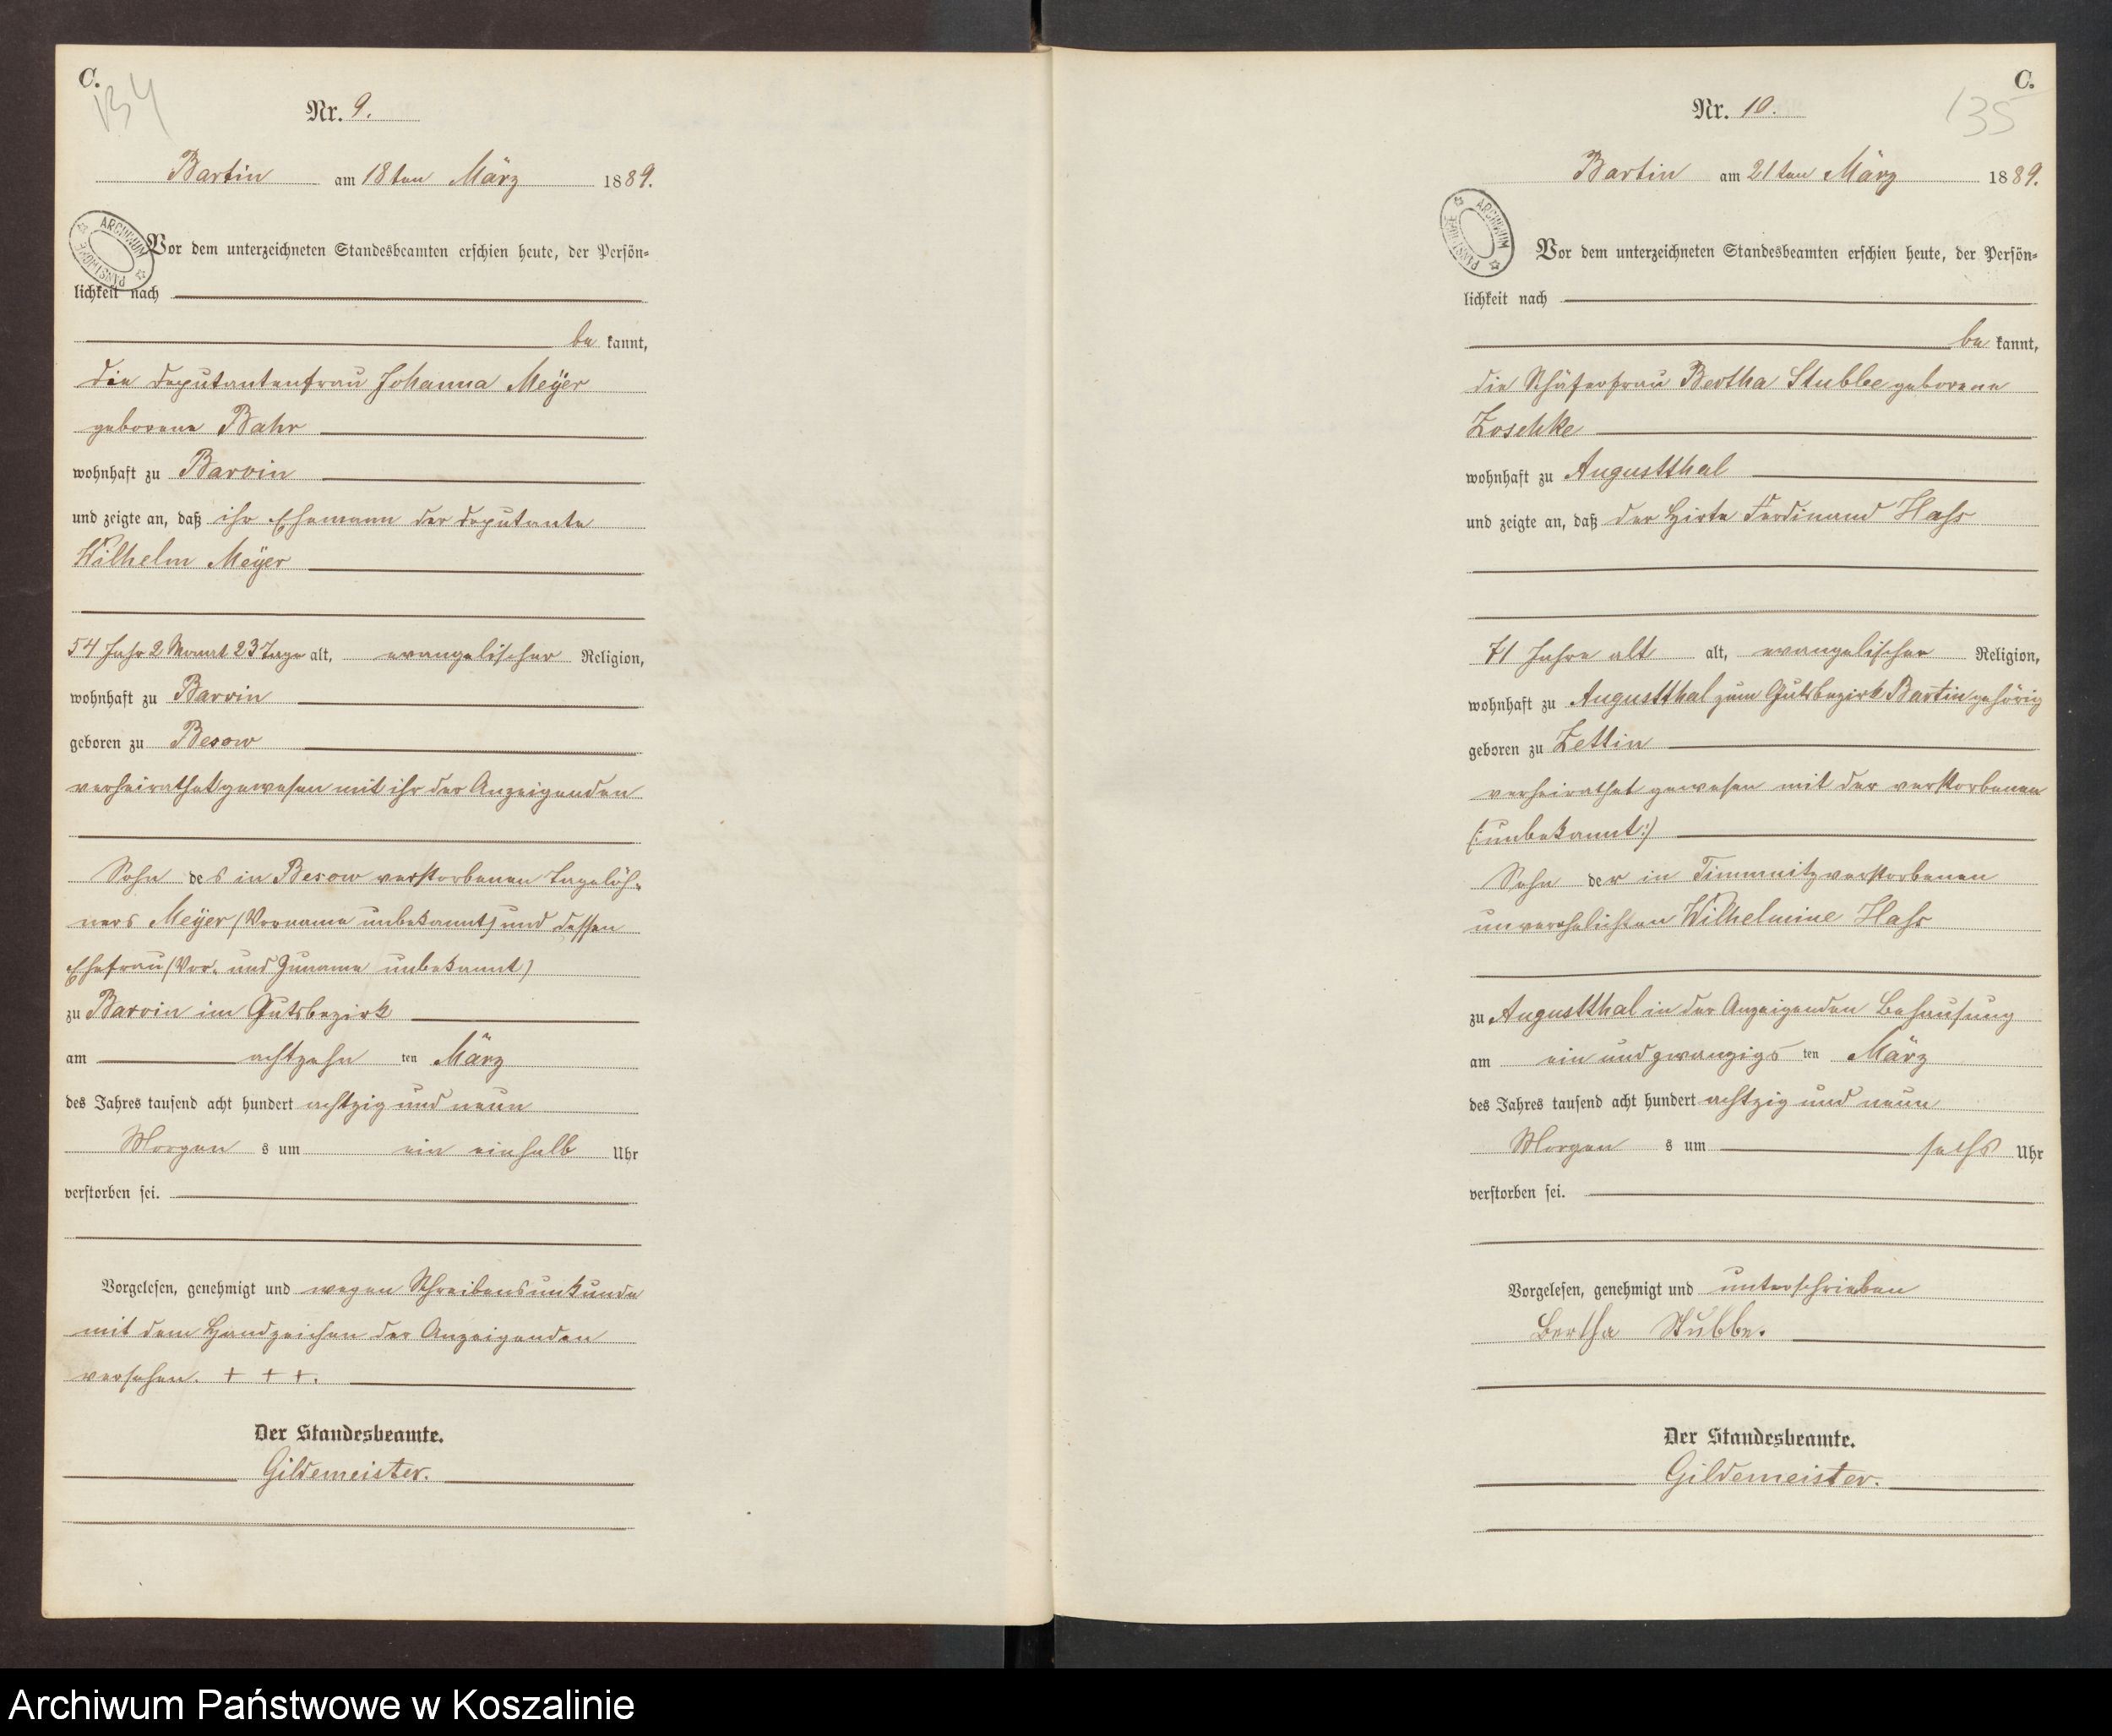 C.
134
Nr. 9.
Bartin am 18ten März 1889.
ARCHIWUM PAŃSTWOWE
Vor dem unterzeichneten Standesbeamten erschien heute, der Persön-
lichkeit nach
be kannt,
die Deputantenfrau Johanna Meÿer
geborene Bahr
wohnhaft zu Barvin
und zeigte an, daß ihr Ehemann der Deputante
Wilhelm Meÿer
54 Jahr 2 Monat 23 Tage alt, evangelischer Religion,
wohnhaft zu Barvin
geboren zu Besow
verheirathet gewesen mit ihr der Anzeigenden
Sohn des in Besow verstorbenen Tagelöh-
ners Meÿer (Vorname unbekannt) und dessen
Ehefrau (Vor- und Zuname unbekannt)
zu Barvin im Gutsbezirk
am achtzehn ten März
des Jahres tausend acht hundert achtzig und neun
Morgen s um ein einhalb Uhr
verstorben sei.
Vorgelesen, genehmigt und wegen Schreibensunkunde
mit dem Handzeichen der Anzeigenden
versehen. + + +.
Der Standesbeamte.
Gildemeister.
C.
135
Nr. 10.
Bartin am 21ten März 1889.
ARCHIWUM PAŃSTWOWE
Vor dem unterzeichneten Standesbeamten erschien heute, der Persön-
lichkeit nach
be kannt,
die Schäferfrau Bertha Stubbe geborene
Zoschke
wohnhaft zu Augustthal
und zeigte an, daß der Hirte Ferdinand Hass
71 Jahre alt alt, evangelischer Religion,
wohnhaft zu Augustthal zum Gutsbezirk Bartin gehörig
geboren zu Zettin
verheirathet gewesen mit der verstorbenen
(: unbekannt :)
Sohn der in Timmnitz verstorbenen
unverehelichten Wilhelmine Hass
zu Augustthal in der Anzeigenden Behausung
am ein und zwanzigs ten März
des Jahres tausend acht hundert achtzig und neun
Morgen s um sechs Uhr
verstorben sei.
Vorgelesen, genehmigt und unterschrieben
Bertha Stubbe.
Der Standesbeamte.
Gildemeister.
Archiwum Państwowe w Koszalinie